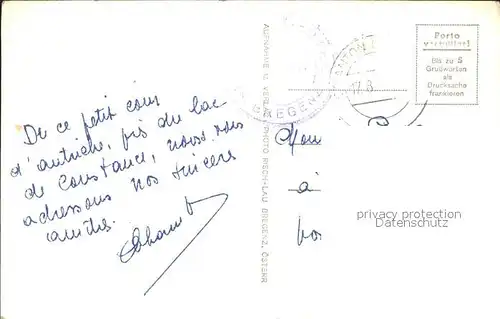 De ce petit coin
d'autriche, près du lac
de Constance, nous vous
adressons nos sincères
amitiés.
AUFNAHME U. VERLAG PHOTO RISCH-LAU BREGENZ, ÖSTERR
BREGENZ
ANTON
17.8.
Porto
verteilter!
Bis zu 5
Grußworten
als
Drucksache
frankieren
à
privacy protection
Datenschutz